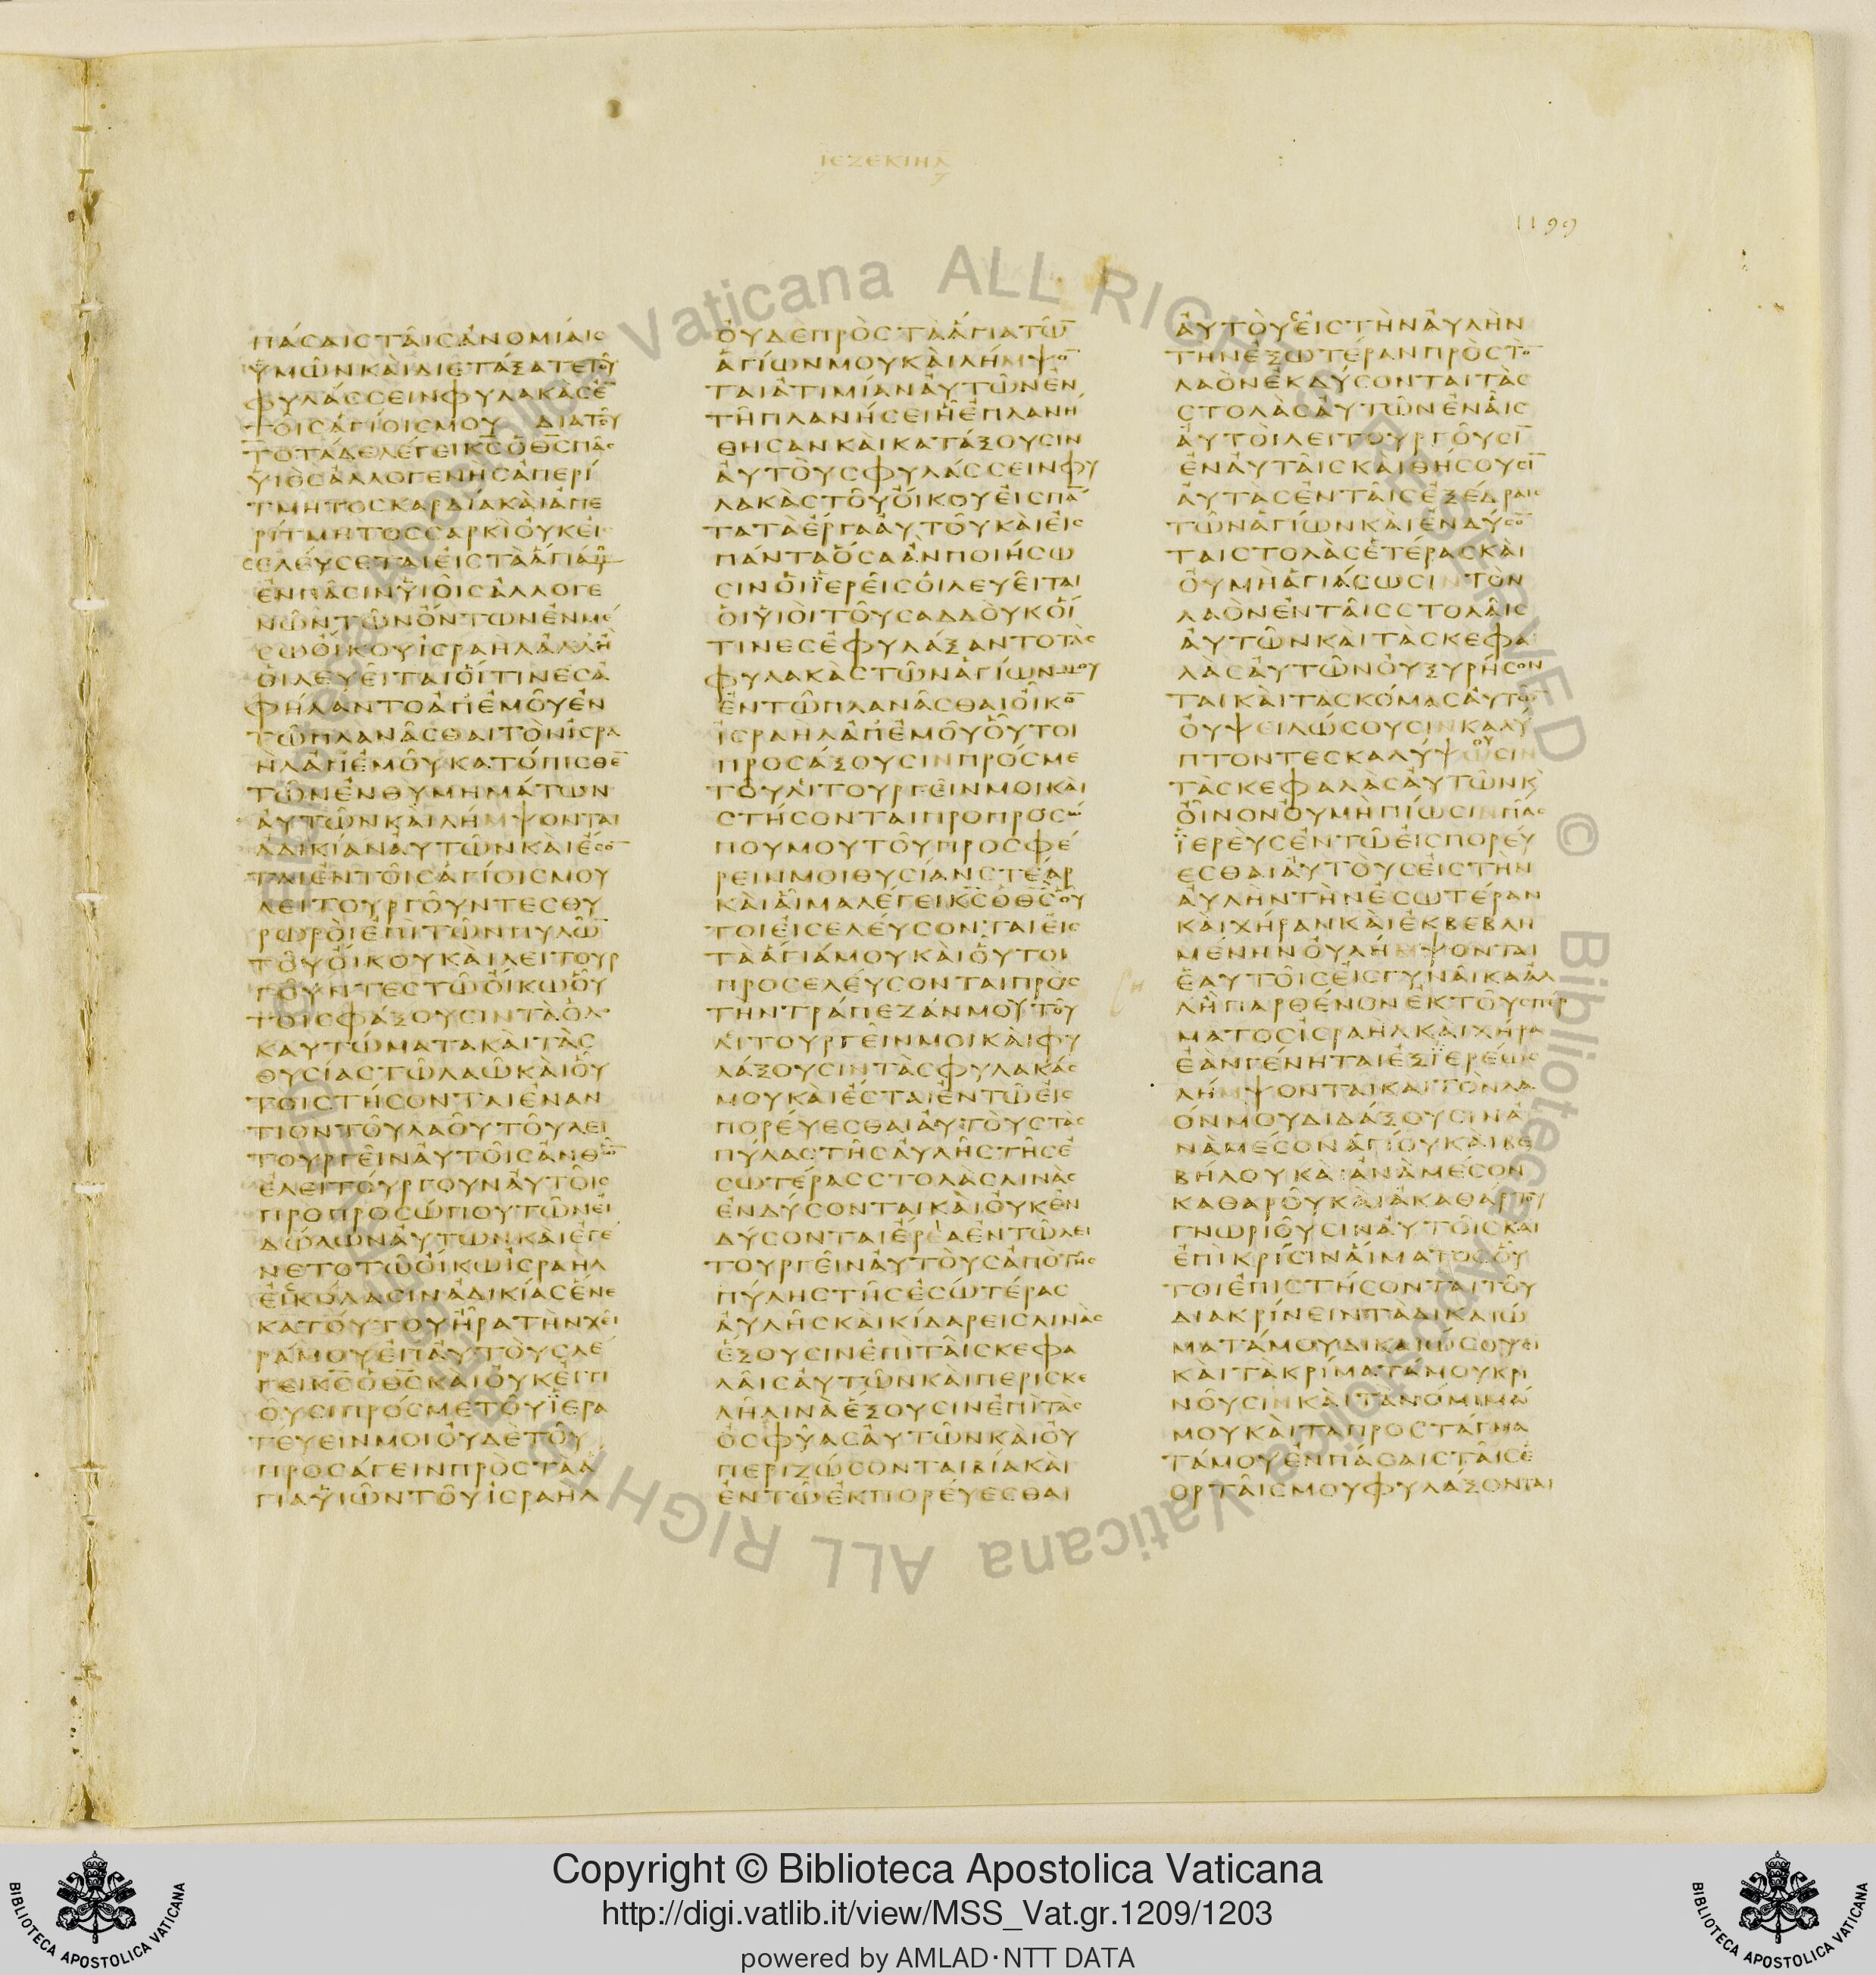 ΙΕΖΕΚΙΗΛ
1199
ΠΑCΑΙCΤΑΙCΑΝΟΜΙΑΙC
ΥΜΩΝΚΑΙΔΙΕΤΑΞΑΤΕΤΟΥ
ΦΥΛΑCCΕΙΝΦΥΛΑΚΑCΕ̅
ΤΟΙCΑΓΙΟΙCΜΟΥ ΔΙΑΤΟΥ
ΤΟΤΑΔΕΛΕΓΕΙΚ̅C̅ΟΘ̅C̅ΠΑC
ΥΙΟCΑΛΛΟΓΕΝΗCΑΠΕΡΙ
ΤΜΗΤΟCΚΑΡΔΙΑΚΑΙΑΠΕ
ΡΙΤΜΗΤΟCCΑΡΚΙΟΥΚΕΙ
CΕΛΕΥCΕΤΑΙΕΙCΤΑΑΓΙΑΜΟΥ
ΕΝΠΑCΙΝΥΙΟΙCΑΛΛΟΓΕ
ΝΩΝΤΩΝΟΝΤΩΝΕΝΜΕ
CΩΟΙΚΟΥΙCΡΑΗΛΑΛΛΗ
ΟΙΛΕΥΕΙΤΑΙΟΙΤΙΝΕCΑ
ΦΗΛΑΝΤΟΑΠΕΜΟΥΕΝ
ΤΩΠΛΑΝΑCΘΑΙΤΟΝΙCΡΑ
ΗΛΑΠΕΜΟΥΚΑΤΟΠΙCΘΕ̅
ΤΩΝΕΝΘΥΜΗΜΑΤΩΝ
ΑΥΤΩΝΚΑΙΛΗΜΨΟΝΤΑΙ
ΑΔΙΚΙΑΝΑΥΤΩΝΚΑΙΕCΟ̅
ΤΑΙΕΝΤΟΙCΑΓΙΟΙCΜΟΥ
ΛΕΙΤΟΥΡΓΟΥΝΤΕCΘΥ
ΡΩΡΟΙΕΠΙΤΩΝΠΥΛΩ̅
ΤΟΥΟΙΚΟΥΚΑΙΛΕΙΤΟΥΡ
ΓΟΥΝΤΕCΤΩΟΙΚΩΟΥ
ΤΟΙCΦΑΞΟΥCΙΝΤΑΟΛΟ
ΚΑΥΤΩΜΑΤΑΚΑΙΤΑC
ΘΥCΙΑCΤΩΛΑΩΚΑΙΟΥ
ΤΟΙCΤΗCΟΝΤΑΙΕΝΑΝ
ΤΙΟΝΤΟΥΛΑΟΥΤΟΥΛΕΙ
ΤΟΥΡΓΕΙΝΑΥΤΟΙCΑΝΘΩ̅
ΕΛΕΙΤΟΥΡΓΟΥΝΑΥΤΟΙC
ΠΡΟΠΡΟCΩΠΟΥΤΩΝΕΙ
ΔΩΛΩΝΑΥΤΩΝΚΑΙΕΓΕ
ΝΕΤΟΤΩΟΙΚΩΙCΡΑΗΛ
ΕΙCΚΟΛΑCΙΝΑΔΙΚΙΑCΕΝΕ
ΚΑΤΟΥΤΟΥΗΡΑΤΗΝΧΕΙ
ΡΑΜΟΥΕΠΑΥΤΟΥCΛΕ
ΓΕΙΚ̅C̅ΟΘ̅C̅ΚΑΙΟΥΚΕΓΓΙ
ΟΥCΙΠΡΟCΜΕΤΟΥΙΕΡΑ
ΤΕΥΕΙΝΜΟΙΟΥΔΕΤΟΥ
ΠΡΟCΑΓΕΙΝΠΡΟCΤΑΑ
ΓΙΑΥΙΩΝΤΟΥΙCΡΑΗΛ
ΟΥΔΕΠΡΟCΤΑΑΓΙΑΤΩ̅
ΑΓΙΩΝΜΟΥΚΑΙΛΗΜΨΟ̅
ΤΑΙΑΤΙΜΙΑΝΑΥΤΩΝΕΝ
ΤΗΠΛΑΝΗCΕΙΗΕΠΛΑΝΗ
ΘΗCΑΝΚΑΙΚΑΤΑΞΟΥCΙΝ
ΑΥΤΟΥCΦΥΛΑCCΕΙΝΦΥ
ΛΑΚΑCΤΟΥΟΙΚΟΥΕΙCΠΑ̅
ΤΑΤΑΕΡΓΑΑΥΤΟΥΚΑΙΕΙC
ΠΑΝΤΑΟCΑΑΝΠΟΙΗCΩ
CΙΝΟΙΙΕΡΕΙCΟΙΛΕΥΕΙΤΑΙ
ΟΙΥΙΟΙΤΟΥCΑΔΔΟΥΚΟΙ
ΤΙΝΕCΕΦΥΛΑΞΑΝΤΟΤΑC
ΦΥΛΑΚΑCΤΩΝΑΓΙΩΝΜΟΥ
ΕΝΤΩΠΛΑΝΑCΘΑΙΟΙΚΟ̅
ΙCΡΑΗΛΑΠΕΜΟΥΟΥΤΟΙ
ΠΡΟCΑΞΟΥCΙΝΠΡΟCΜΕ
ΤΟΥΛΙΤΟΥΡΓΕΙΝΜΟΙΚΑΙ
CΤΗCΟΝΤΑΙΠΡΟΠΡΟCΩ
ΠΟΥΜΟΥΤΟΥΠΡΟCΦΕ
ΡΕΙΝΜΟΙΘΥCΙΑΝCΤΕΑΡ
ΚΑΙΑΙΜΑΛΕΓΕΙΚ̅C̅ΟΘ̅C̅ΟΥ
ΤΟΙΕΙCΕΛΕΥCΟΝΤΑΙΕΙC
ΤΑΑΓΙΑΜΟΥΚΑΙΟΥΤΟΙ
ΠΡΟCΕΛΕΥCΟΝΤΑΙΠΡΟC
ΤΗΝΤΡΑΠΕΖΑΝΜΟΥΤΟΥ
ΛΙΤΟΥΡΓΕΙΝΜΟΙΚΑΙΦΥ
ΛΑΞΟΥCΙΝΤΑCΦΥΛΑΚΑC
ΜΟΥΚΑΙΕCΤΑΙΕΝΤΩΕΙC
ΠΟΡΕΥΕCΘΑΙΑΥΤΟΥCΤΑC
ΠΥΛΑCΤΗCΑΥΛΗCΤΗCΕ
CΩΤΕΡΑCCΤΟΛΑCΛΙΝΑC
ΕΝΔΥCΟΝΤΑΙΚΑΙΟΥΚΕΝ
ΔΥCΟΝΤΑΙΕΡΕΑΕΝΤΩΛΕΙ
ΤΟΥΡΓΕΙΝΑΥΤΟΥCΑΠΟΤΗC
ΠΥΛΗCΤΗCΕCΩΤΕΡΑC
ΑΥΛΗCΚΑΙΚΙΔΑΡΕΙCΛΙΝΑC
ΕΞΟΥCΙΝΕΠΙΤΑΙCΚΕΦΑ
ΛΑΙCΑΥΤΩΝΚΑΙΠΕΡΙCΚΕ
ΛΗΛΙΝΑΕΞΟΥCΙΝΕΠΙΤΑC
ΟCΦΥΑCΑΥΤΩΝΚΑΙΟΥ
ΠΕΡΙΖΩCΟΝΤΑΙΒΙΑΚΑΙ
ΕΝΤΩΕΚΠΟΡΕΥΕCΘΑΙ
ΑΥΤΟΥCΕΙCΤΗΝΑΥΛΗΝ
ΤΗΝΕΞΩΤΕΡΑΝΠΡΟCΤΟ̅
ΛΑΟΝΕΚΔΥCΟΝΤΑΙΤΑC
CΤΟΛΑCΑΥΤΩΝΕΝΑΙC
ΑΥΤΟΙΛΕΙΤΟΥΡΓΟΥCΙ̅
ΕΝΑΥΤΑΙCΚΑΙΘΗCΟΥCΙ̅
ΑΥΤΑCΕΝΤΑΙCΕΞΕΔΡΑΙC
ΤΩΝΑΓΙΩΝΚΑΙΕΝΔΥCΟ̅
ΤΑΙCΤΟΛΑCΕΤΕΡΑCΚΑΙ
ΟΥΜΗΑΓΙΑCΩCΙΝΤΟΝ
ΛΑΟΝΕΝΤΑΙCCΤΟΛΑΙC
ΑΥΤΩΝΚΑΙΤΑCΚΕΦΑ
ΛΑCΑΥΤΩΝΟΥΞΥΡΗCΟΝ
ΤΑΙΚΑΙΤΑCΚΟΜΑCΑΥΤΩ̅
ΟΥΨΕΙΛΩCΟΥCΙΝΚΑΛΥ
ΠΤΟΝΤΕCΚΑΛΥΨΟΥCΙΝ
ΤΑCΚΕΦΑΛΑCΑΥΤΩΝΚ
ΟΙΝΟΝΟΥΜΗΠΙΩCΙΝΠΑC
ΙΕΡΕΥCΕΝΤΩΕΙCΠΟΡΕΥ
ΕCΘΑΙΑΥΤΟΥCΕΙCΤΗΝ
ΑΥΛΗΝΤΗΝΕCΩΤΕΡΑΝ
ΚΑΙΧΗΡΑΝΚΑΙΕΚΒΕΒΛΗ
ΜΕΝΗΝΟΥΛΗΜΨΟΝΤΑΙ
ΕΑΥΤΟΙCΕΙCΓΥΝΑΙΚΑΑΛ
ΛΗΠΑΡΘΕΝΟΝΕΚΤΟΥCΠΕΡ
ΜΑΤΟCΙCΡΑΗΛΚΑΙΧΗΡΑ
ΕΑΝΓΕΝΗΤΑΙΕΞΙΕΡΕΩC
ΛΗΜΨΟΝΤΑΙΚΑΙΤΟΝΛΑ
ΟΝΜΟΥΔΙΔΑΞΟΥCΙΝΑ
ΝΑΜΕCΟΝΑΓΙΟΥΚΑΙΒΕ
ΒΗΛΟΥΚΑΙΑΝΑΜΕCΟΝ
ΚΑΘΑΡΟΥΚΑΙΑΚΑΘΑΡΤΟΥ
ΓΝΩΡΙΟΥCΙΝΑΥΤΟΙCΚΑΙ
ΕΠΙΚΡΙCΙΝΑΙΜΑΤΟCΟΥ
ΤΟΙΕΠΙCΤΗCΟΝΤΑΙΤΟΥ
ΔΙΑΚΡΙΝΕΙΝΤΑΔΙΚΑΙΩ
ΜΑΤΑΜΟΥΔΙΚΑΙΩCΟΥCΙ
ΚΑΙΤΑΚΡΙΜΑΤΑΜΟΥΚΡΙ
ΝΟΥCΙΝΚΑΙΤΑΝΟΜΙΜΑ
ΜΟΥΚΑΙΤΑΠΡΟCΤΑΓΜΑ
ΤΑΜΟΥΕΝΠΑCΑΙCΤΑΙCΕ
ΟΡΤΑΙCΜΟΥΦΥΛΑΞΟΝΤΑΙ
Vaticana ALL RIGHTS RESERVED © Biblioteca Apostolica Vaticana ALL RIGHTS RESERVED © Biblioteca Apostolica
Copyright © Biblioteca Apostolica Vaticana
http://digi.vatlib.it/view/MSS_Vat.gr.1209/1203
powered by AMLAD·NTT DATA
BIBLIOTECA APOSTOLICA VATICANA
BIBLIOTECA APOSTOLICA VATICANA